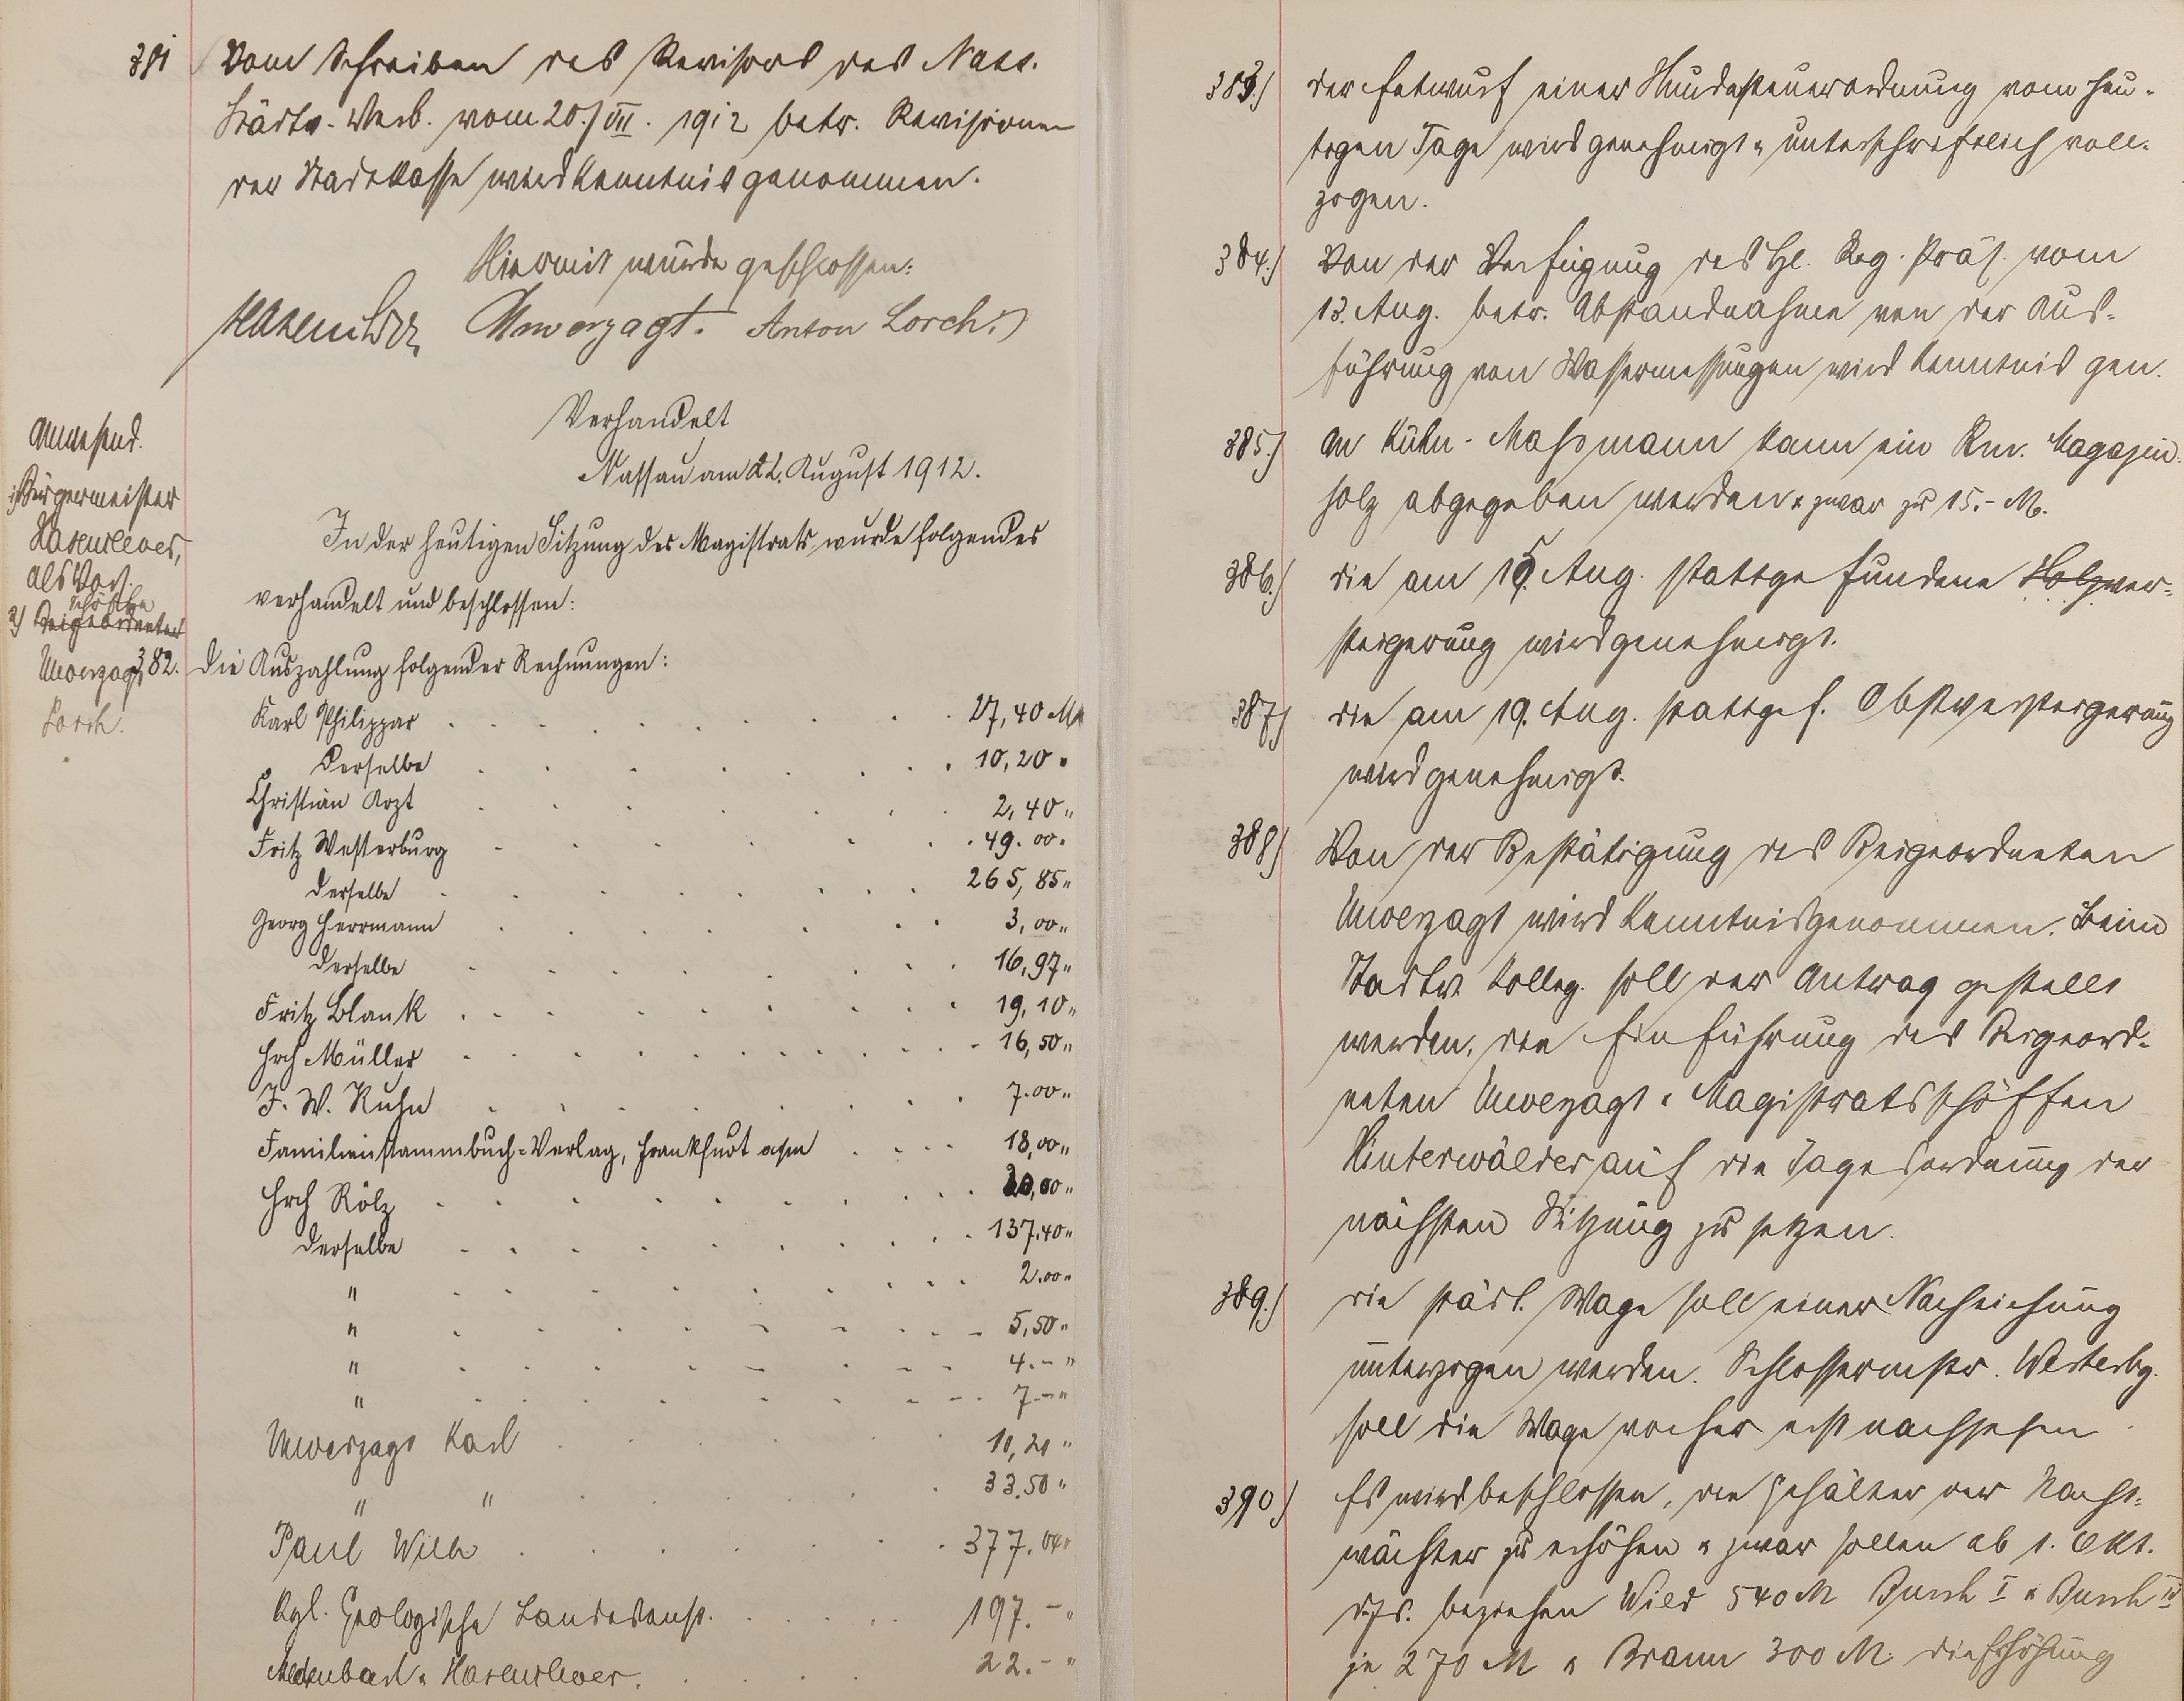 381 Vom Schreiben des Revisors des Nass.
Städte-Verb. vom 20./VII. 1912 betr. Revisionen
der Stadtkasse wird Kenntnis genommen.
Hiermit wurde geschlossen:
Hasenclever Unverzagt. Anton Lorch
Verhandelt
Nassau am 22. August 1912.
In der heutigen Sitzung des Magistrats wurde folgendes
verhandelt und beschlossen:
Anwesend.
1) Bürgermeister
Hasenclever,
als Vors.
Schöffe
2) Beigeordneter
Unverzagt
Lorch.
382. Die Auszahlung folgender Rechnungen:
Karl Philippar 27,40 M
Derselbe 10,20 "
Christian Arzt 2,40 "
Fritz Westerburg 49.00 "
derselbe 265,85 "
Georg Herrmann 3,00 "
derselbe 16,97 "
Fritz Blank 19,10 "
Hrch Müller 16,50 "
J. W. Kuhn 7.00 "
Familienstammbuch-Verlag, Frankfurt a/m 18,00 "
Hrch Rölz 20,00 "
derselbe 137.40 "
" 2.00 "
" 5,50 "
" 4.- "
" 7.- "
Unverzagt Karl 10,20 "
" " 33.50 "
Paul Wilh 377.04 "
Kgl. Geologische Landesanst. 197.- "
Hasenclever. 22.- "
383.) der Entwurf einer Hundesteuerordnung vom heu-
tigen Tage wird genehmigt u. unterschriftlich voll-
zogen.
384.) Von der Verfügung des H. Reg. Präs. vom
13. Aug. betr. Abstandnahme von der Aus-
führung von Wassermessungen wird Kenntnis gen.
385.) An Kühn-Massmann kann ein Rm. Magazin-
holz abgegeben werden u. zwar zu 15.- M.
386.) die am 15. Aug. stattgefundene Holzver-
steigerung wird genehmigt.
387) die am 19. Aug. stattgef. Obstversteigerung
wird genehmigt.
388) Von der Bestätigung des Beigeordneten
Unverzagt wird Kenntnis genommen. Beim
Stadtv. Kolleg. soll der Antrag gestellt
werden, die Einführung des Beigeord-
neten Unverzagt u. Magistratsschöffen
Hinterwälder auf die Tagesordnung der
nächsten Sitzung zu setzen.
389.) die städt. Wage soll einer Nacheichung
unterzogen werden. Schlossermstr. Westerbg.
soll die Wage vorher erst nachsehen
390) Es wird beschlossen, die Gehälter der Nacht-
wächter zu erhöhen u. zwar sollen ab 1. Okt.
ds. Js. beziehen Wied 540 M Busch I u. Busch IV
je 270 M u. Braun 300 M. die Erhöhung